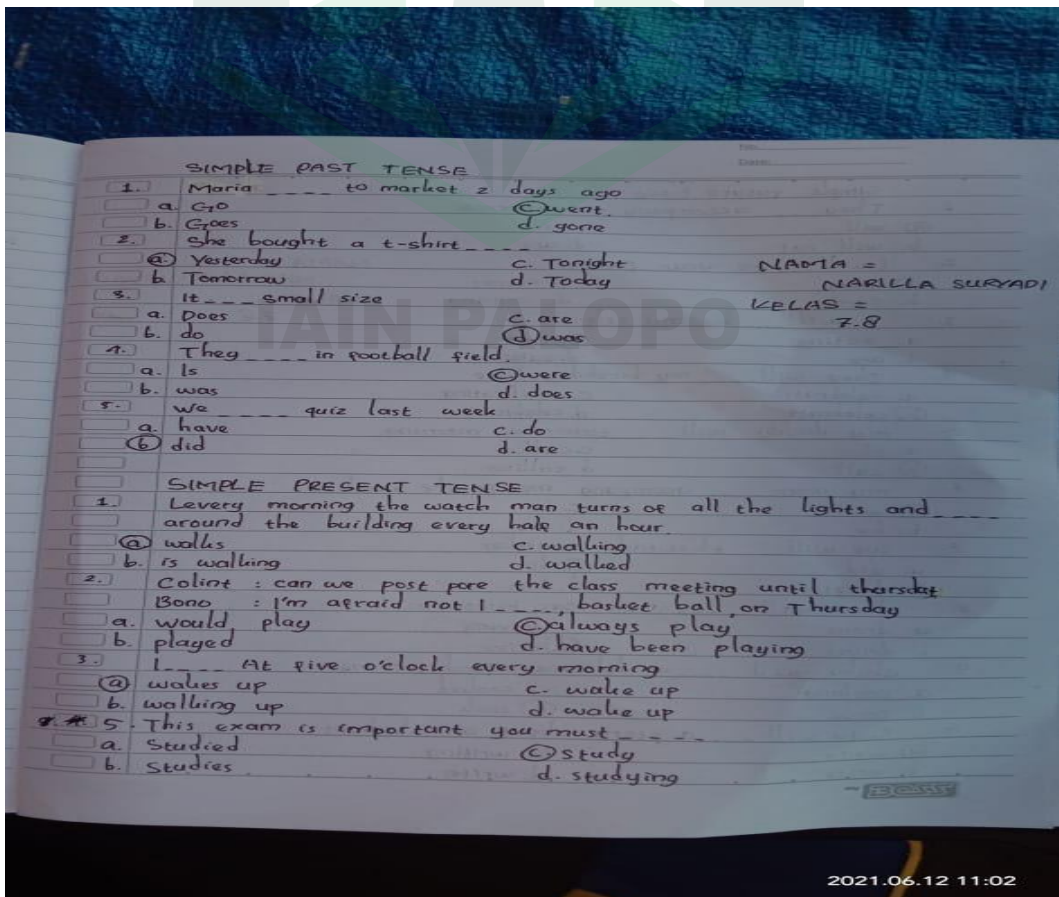 No:
Date:
SIMPLE PAST TENSE
1. Maria ---- to market 2 days ago
a. GO c. went.
b. Goes d. gone
2. She bought a t-shirt ----
a. Yesterday c. Tonight
b. Tomorrow d. Today
NAMA =
NARILLA SURYADI
KELAS =
7.8
3. It --- small size
a. Does c. are
b. do d. was
4. They ---- in football field.
a. Is c. were
b. was d. does
5. We ---- quiz last week
a. have c. do
b. did d. are
SIMPLE PRESENT TENSE
1. Levery morning the watch man turns of all the lights and ----
around the building every half an hour.
a. walks c. walking
b. is walking d. walked
2. Colint : can we post pore the class meeting until thursdat
Bono : I'm afraid not I ----, basket ball on Thursday
a. would play c. always play
b. played d. have been playing
3. I ---- At five o'clock every morning
a. wakes up c. wake up
b. walking up d. wake up
5. This exam is important you must ----
a. Studied c. study
b. Studies d. studying
BOSS
IAIN PALOPO
2021.06.12 11:02